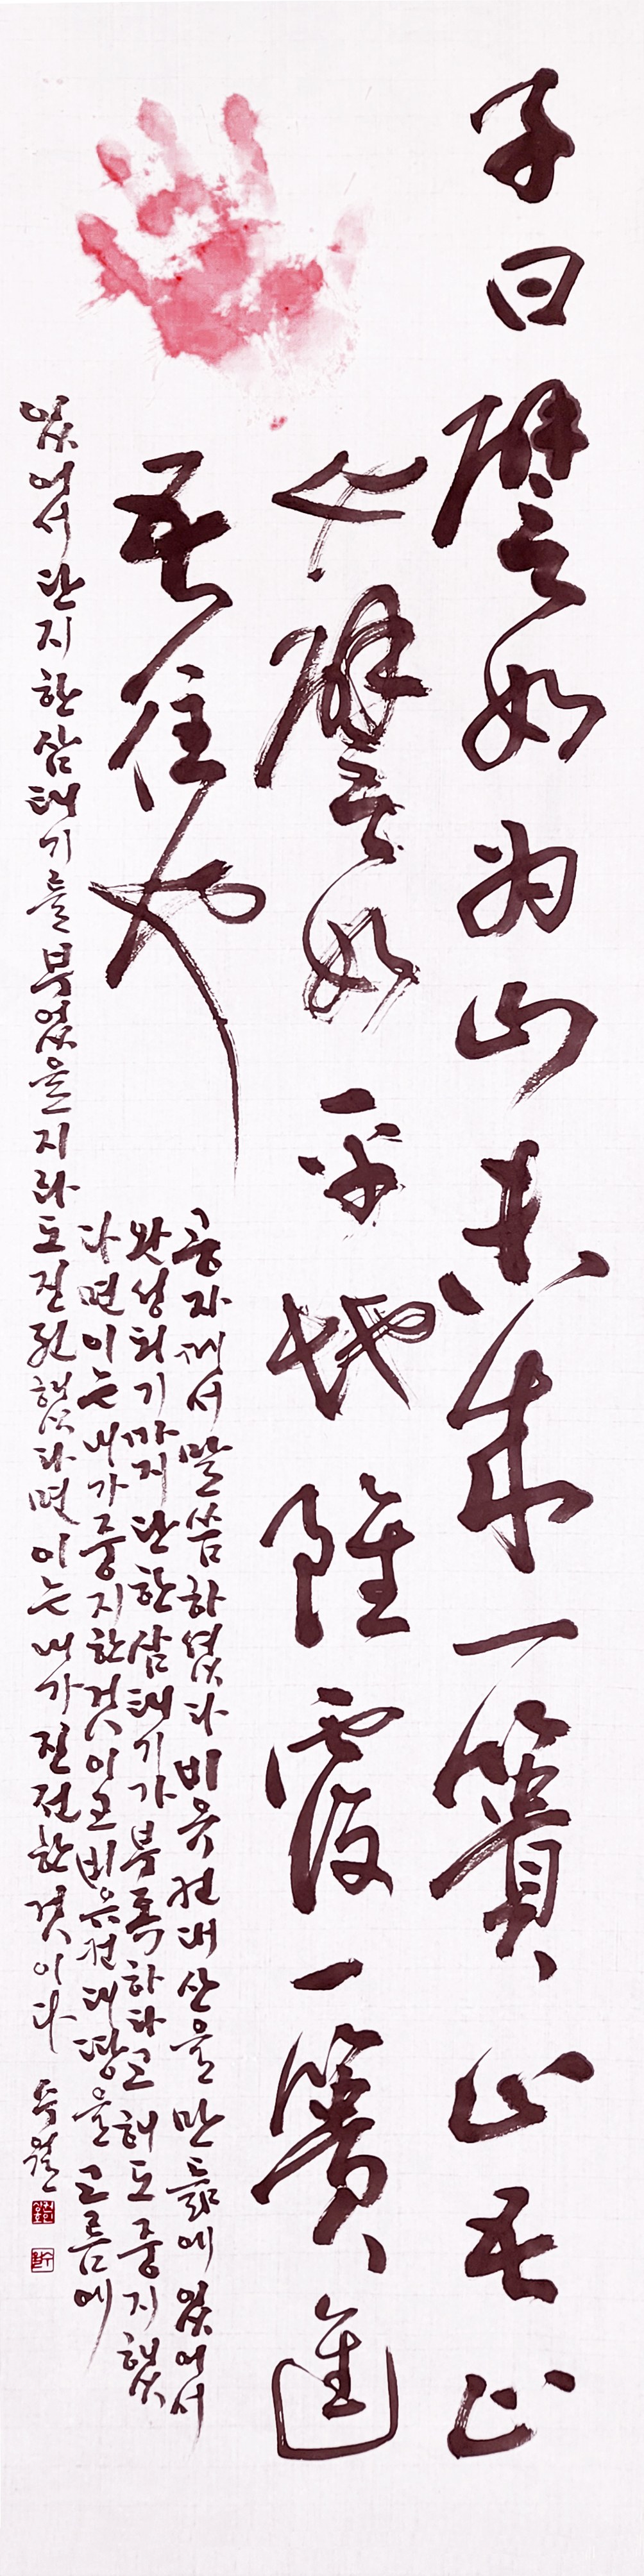 子曰譬如爲山未成一簣止吾止
也譬如平地雖覆一簣進
吾往也
공자께서 말씀하셨다 비유컨대 산을 만듦에 있어서
완성되기까지 단 한 삼태기가 부족하다고 해도 중지했
다면 이는 내가 중지한 것이고 비유컨대 땅을 고름에
있어서 단지 한 삼태기를 부었을지라도 진전했다면 이는 내가 진전한 것이다 수월